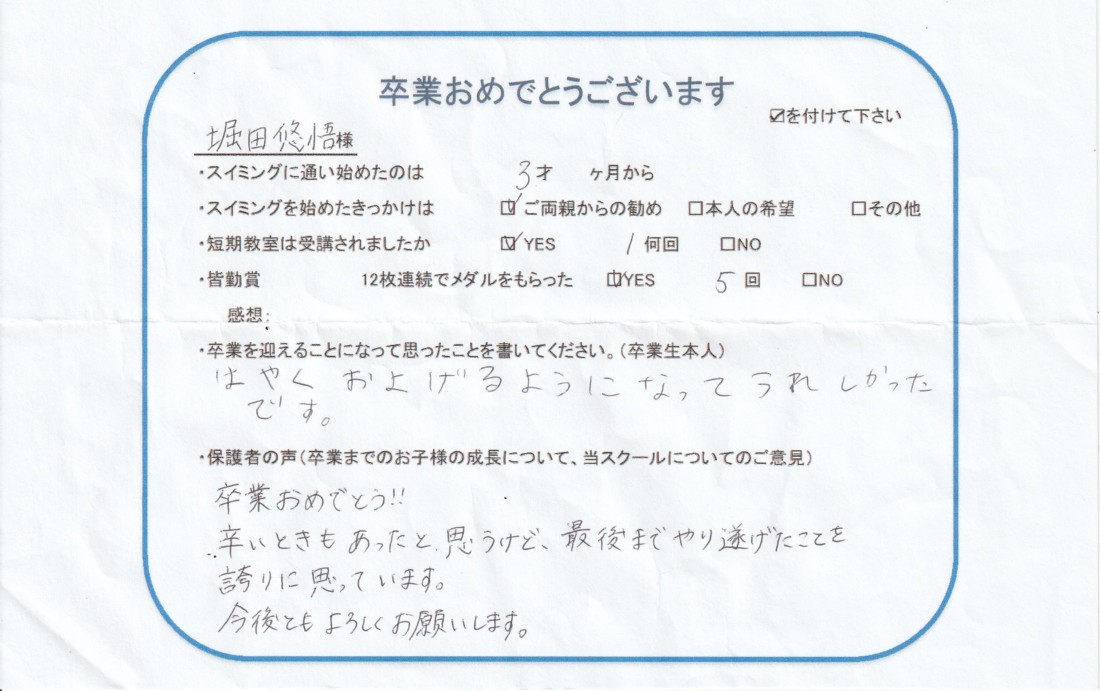 卒業おめでとうございます
☑を付けて下さい
堀田悠悟様
・スイミングに通い始めたのは 3才 ヶ月から
・スイミングを始めたきっかけは ☑ご両親からの勧め □本人の希望 □その他
・短期教室は受講されましたか ☑YES 1何回 □NO
・皆勤賞 12枚連続でメダルをもらった ☑YES 5回 □NO
感想:
・卒業を迎えることになって思ったことを書いてください。(卒業生本人)
はやくおよげるようになってうれしかった
です。
・保護者の声(卒業までのお子様の成長について、当スクールについてのご意見)
卒業おめでとう!!
辛いときもあったと思うけど、最後までやり遂げたことを
誇りに思っています。
今後ともよろしくお願いします。